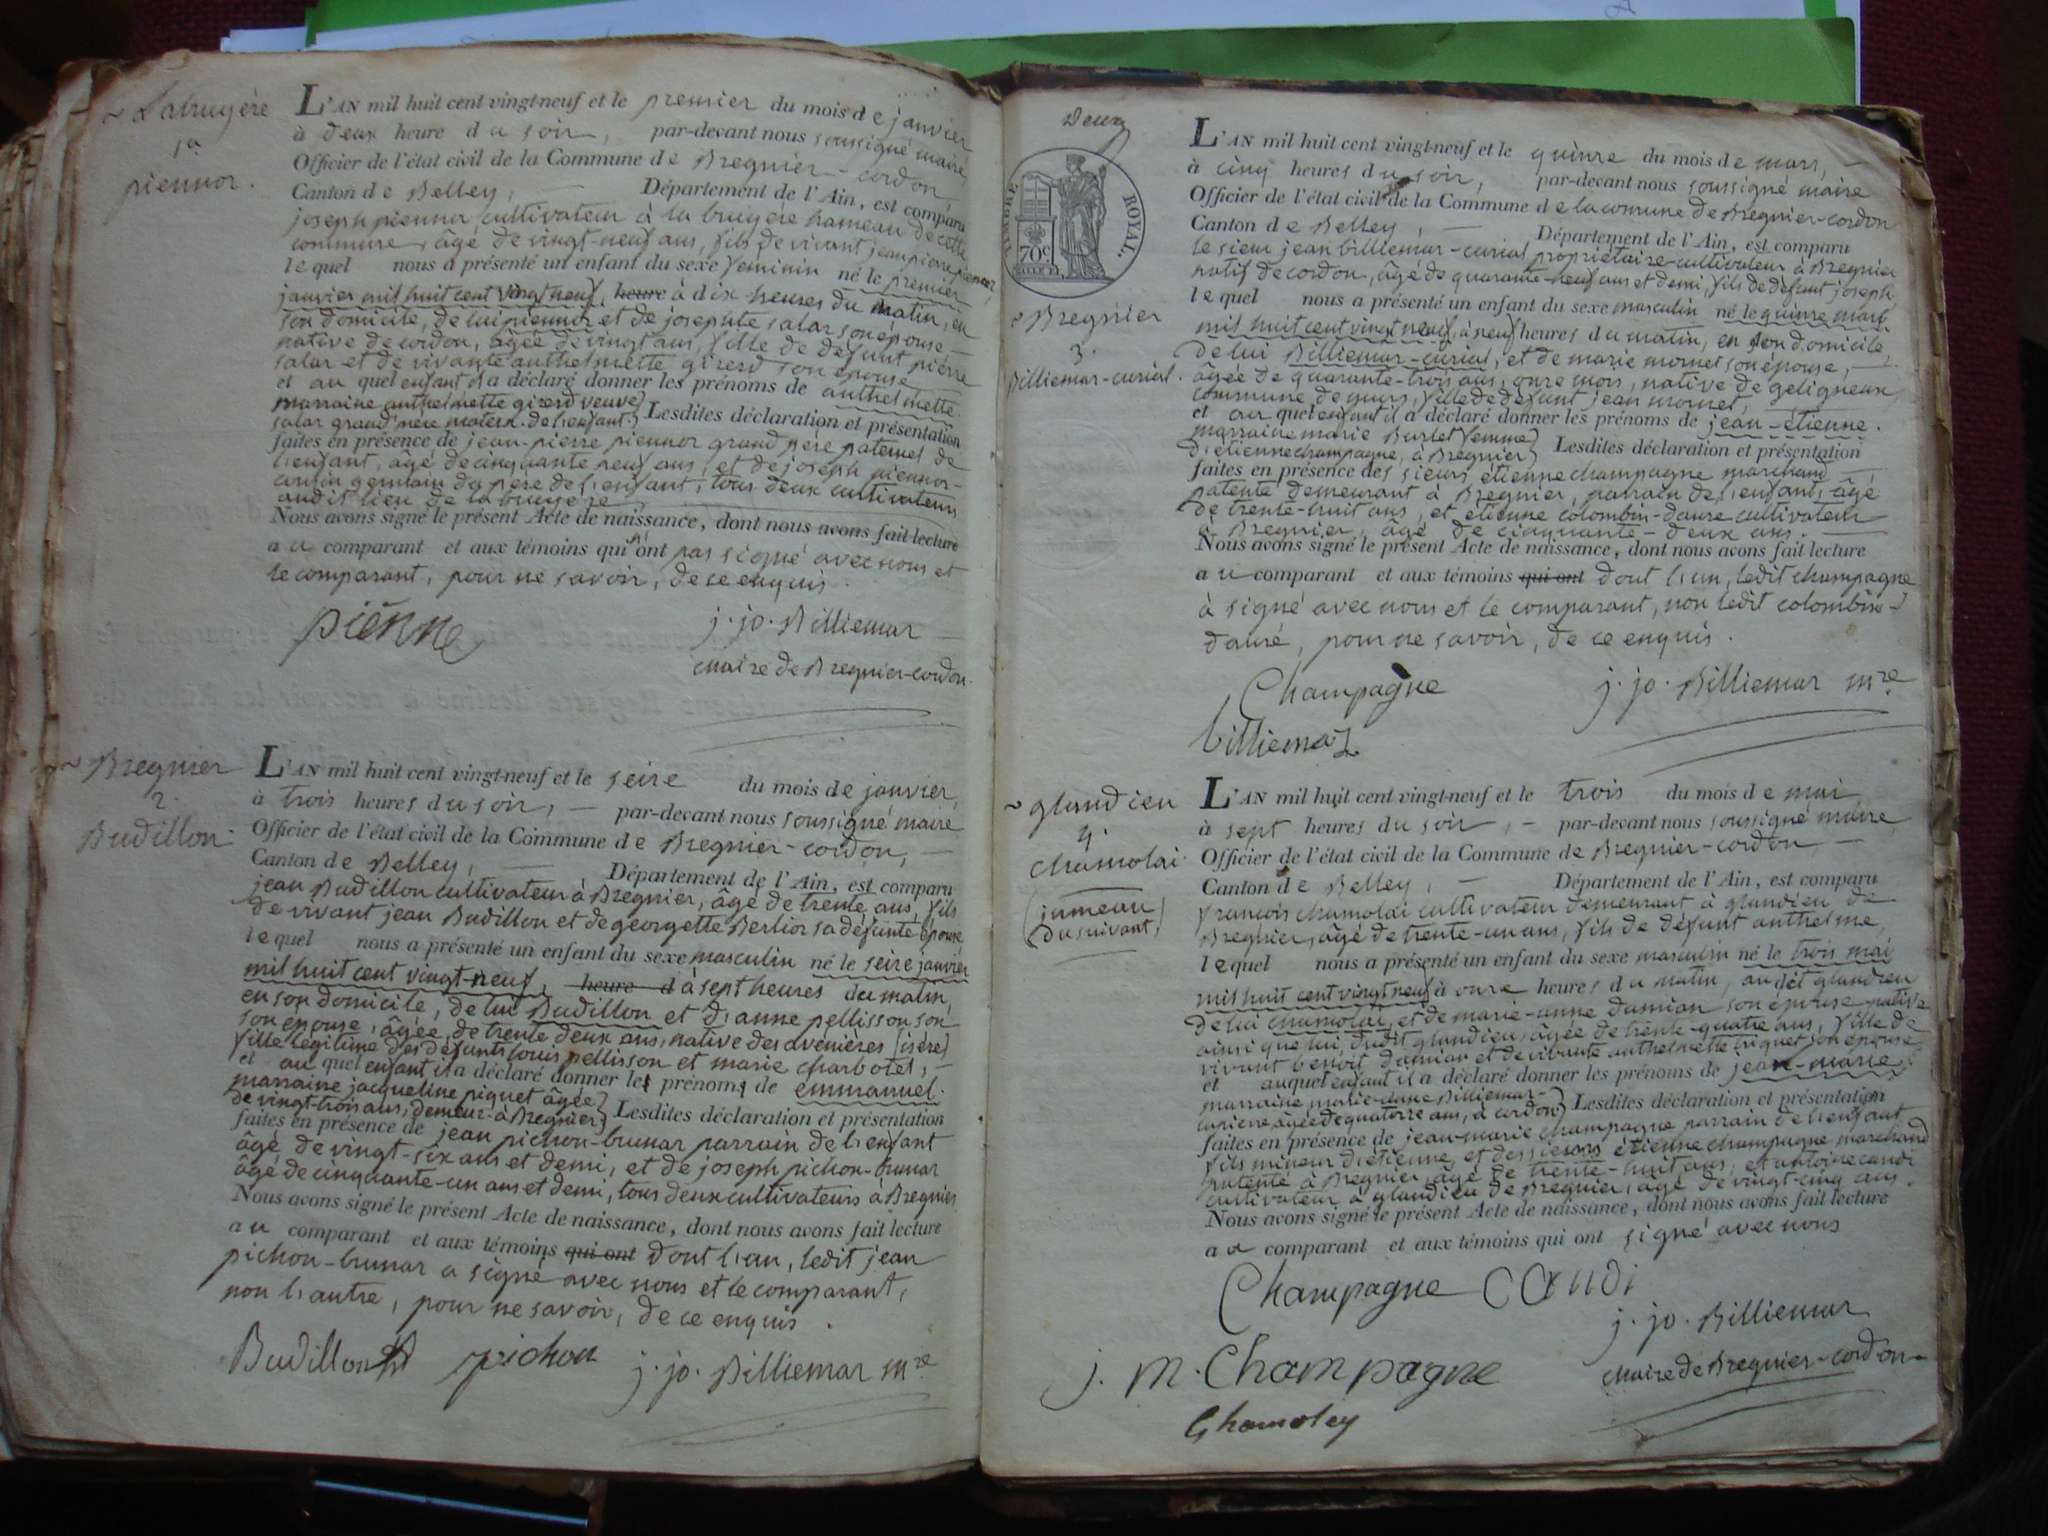 ~ Labruyère
1er
piennor.
L'AN mil huit cent vingt-neuf et le premier du mois de janvier
à deux heure du soir, par-devant nous soussigné maire,
Officier de l'état civil de la Commune de Bregnier-cordon
Canton de Belley, Département de l'Ain, est comparu
joseph piennor cultivateur à la bruyère hameau de cette
commune, âgé de vingt-neuf ans, fils de vivant jean pierre piennor,
lequel nous a présenté un enfant du sexe feminin né le premier
janvier mil huit cent vingt neuf, heure à dix heures du matin, en
son domicile, de lui piennor et de josephte salar son épouse
native de cordon, âgée de vingt ans, fille de défunt pierre
salar et de vivante anthelmette girerd son épouse
et au quel enfant il a déclaré donner les prénoms de anthelmette.
marraine anthelmette girerd veuve
salar grand'mère mater. de l'enfant} Lesdites déclaration et présentation
faites en présence de jean-pierre piennor grand père paternel de
l'enfant, âgé de cinquante neuf ans, et de joseph piennor
cousin germain du père de l'enfant, tous deux cultivateurs
audit lieu de la bruyère
Nous avons signé le présent Acte de naissance, dont nous avons fait lecture
au comparant et aux témoins qui n'ont pas signé avec nous et
le comparant, pour ne savoir, de ce enquis.
piënne
j. jo. Billiemar
maire de Bregnier-cordon.
~ Bregnier
2.
Budillon.
L'AN mil huit cent vingt-neuf et le seize du mois de janvier,
à trois heures du soir, par-devant nous soussigné maire
Officier de l'état civil de la Commune de Bregnier-cordon,
Canton de Belley, Département de l'Ain, est comparu
jean Budillon cultivateur à Bregnier, âgé de trente ans, fils
de vivant jean Budillon et de georgette Berlior sa défunte épouse
lequel nous a présenté un enfant du sexe masculin né le seize janvier
mil huit cent vingt-neuf, heure d à sept heures du matin,
en son domicile, de lui Budillon et d'anne pellisson son
son épouse, âgée de trente deux ans, native des avenières (isère)
fille légitime des défunts louis pellisson et marie charbotel,
et au quel enfant il a déclaré donner les prénoms de emmanuel.
marraine jacqueline piquet âgée
de vingt-trois ans, demeur. à Bregnier} Lesdites déclaration et présentation
faites en présence de jean pichon-brunar parrain de l'enfant
âgé de vingt-six ans et demi, et de joseph pichon-brunar
âgé de cinquante-un ans et demi, tous deux cultivateurs à Bregnier
Nous avons signé le présent Acte de naissance, dont nous avons fait lecture
au comparant et aux témoins qui ont dont l'un, ledit jean
pichon-brunar a signé avec nous et le comparant,
non l'autre, pour ne savoir, de ce enquis.
Budillon pichon j. jo. Billiemar mre
Deux
TIMBRE ROYAL.
70c
~ Bregnier
3.
Billiemar-curial.
L'AN mil huit cent vingt-neuf et le quinze du mois de mars,
à cinq heures du soir, par-devant nous soussigné maire
Officier de l'état civil de la Commune de la comune de Bregnier-cordon
Canton de Belley, Département de l'Ain, est comparu
le sieur jean billiemar-curial propriétaire cultivateur à Bregnier
natif de cordon, âgé de quarante-neuf ans et demi, fils de défunt joseph
lequel nous a présenté un enfant du sexe masculin né le quinze mars
mil huit cent vingt neuf, à neuf heures du matin, en son domicile,
de lui Billiemar-curial, et de marie mornet son épouse,
âgée de quarante-trois ans, onze mois, native de geligneux
commune de murs, fille de défunt jean mornet,
et au quel enfant il a déclaré donner les prénoms de jean-étienne.
marraine marie Burlet femme
d'étienne champagne, à Bregnier} Lesdites déclaration et présentation
faites en présence des sieurs étienne champagne marchand
patenté demeurant à Bregnier, parrain de l'enfant, âgé
de trente-huit ans, et étienne colombin-daure cultivateur
à Bregnier, âgé de cinquante-deux ans.
Nous avons signé le présent Acte de naissance, dont nous avons fait lecture
au comparant et aux témoins qui ont dont l'un, ledit champagne
à signé avec nous et le comparant, non ledit colombin-
dauré, pour ne savoir, de ce enquis.
Champagne j. jo. Billiemar mre
billiemaz
~ glandieu
4.
chamolai.
(jumeau
du suivant)
L'AN mil huit cent vingt-neuf et le trois du mois de mai
à sept heures du soir, par-devant nous soussigné maire
Officier de l'état civil de la Commune de Bregnier-cordon,
Canton de Belley, Département de l'Ain, est comparu
françois chamolai cultivateur demeurant à glandieu de
Bregnier, âgé de trente-un ans, fils de défunt anthelme,
lequel nous a présenté un enfant du sexe masculin né le trois mai
mil huit cent vingt neuf à onze heures du matin, audit glandieu
de lui chamolai, et de marie-anne damian son épouse native
ainsi que lui, dudit glandieu, âgée de trente-quatre ans, fille de
vivant benoit damian et de vivante anthelmette triquet son épouse
et auquel enfant il a déclaré donner les prénoms de jean-marie.
marraine marie-anne Billiemar-
âgée de quatorze ans, à cordon} Lesdites déclaration et présentation
faites en présence de jean-marie champagne parrain de l'enfant
fils mineur d'étienne, et des sieurs étienne champagne marchand
patenté à Bregnier âgé de trente-huit ans, et antoine candi
cultivateur à glandieu de Bregnier, âgé de vingt-cinq ans.
Nous avons signé le présent Acte de naissance, dont nous avons fait lecture
au comparant et aux témoins qui ont signé avec nous
Champagne CANDI
j. jo. Billiemar
j. M. Champagne maire de Bregnier-cordon
Chamoley